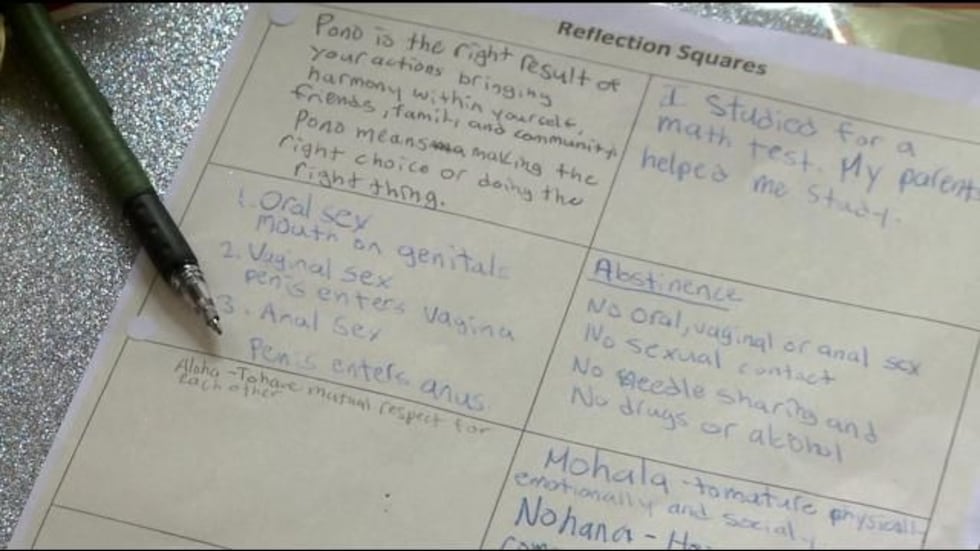 Reflection Squares
Pono is the right result of
your actions bringing
harmony within yourself,
friends, family, and community
Pono means making the
right choice or doing the
right thing.
I studied for a
math test. My parents
helped me study.
1. Oral sex
mouth on genitals
2. Vaginal sex
penis enters vagina
3. Anal Sex
Penis enters anus.
Abstinence
No oral, vaginal or anal sex
No sexual contact
No needle sharing and
No drugs or alcohol
Aloha - To have mutual respect for
each other
Mohala - to mature physically
emotionally and social
Nohana -